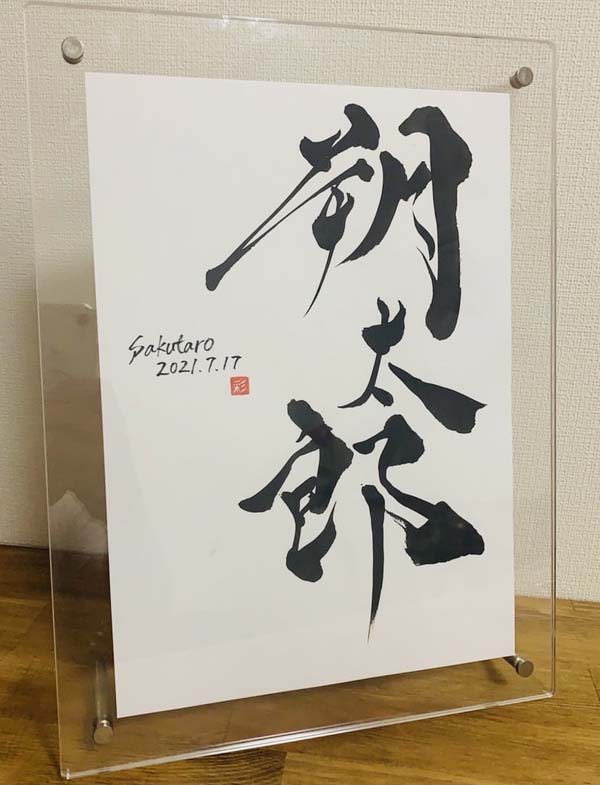 朔太郎
Sakutaro
2021.7.17
彩